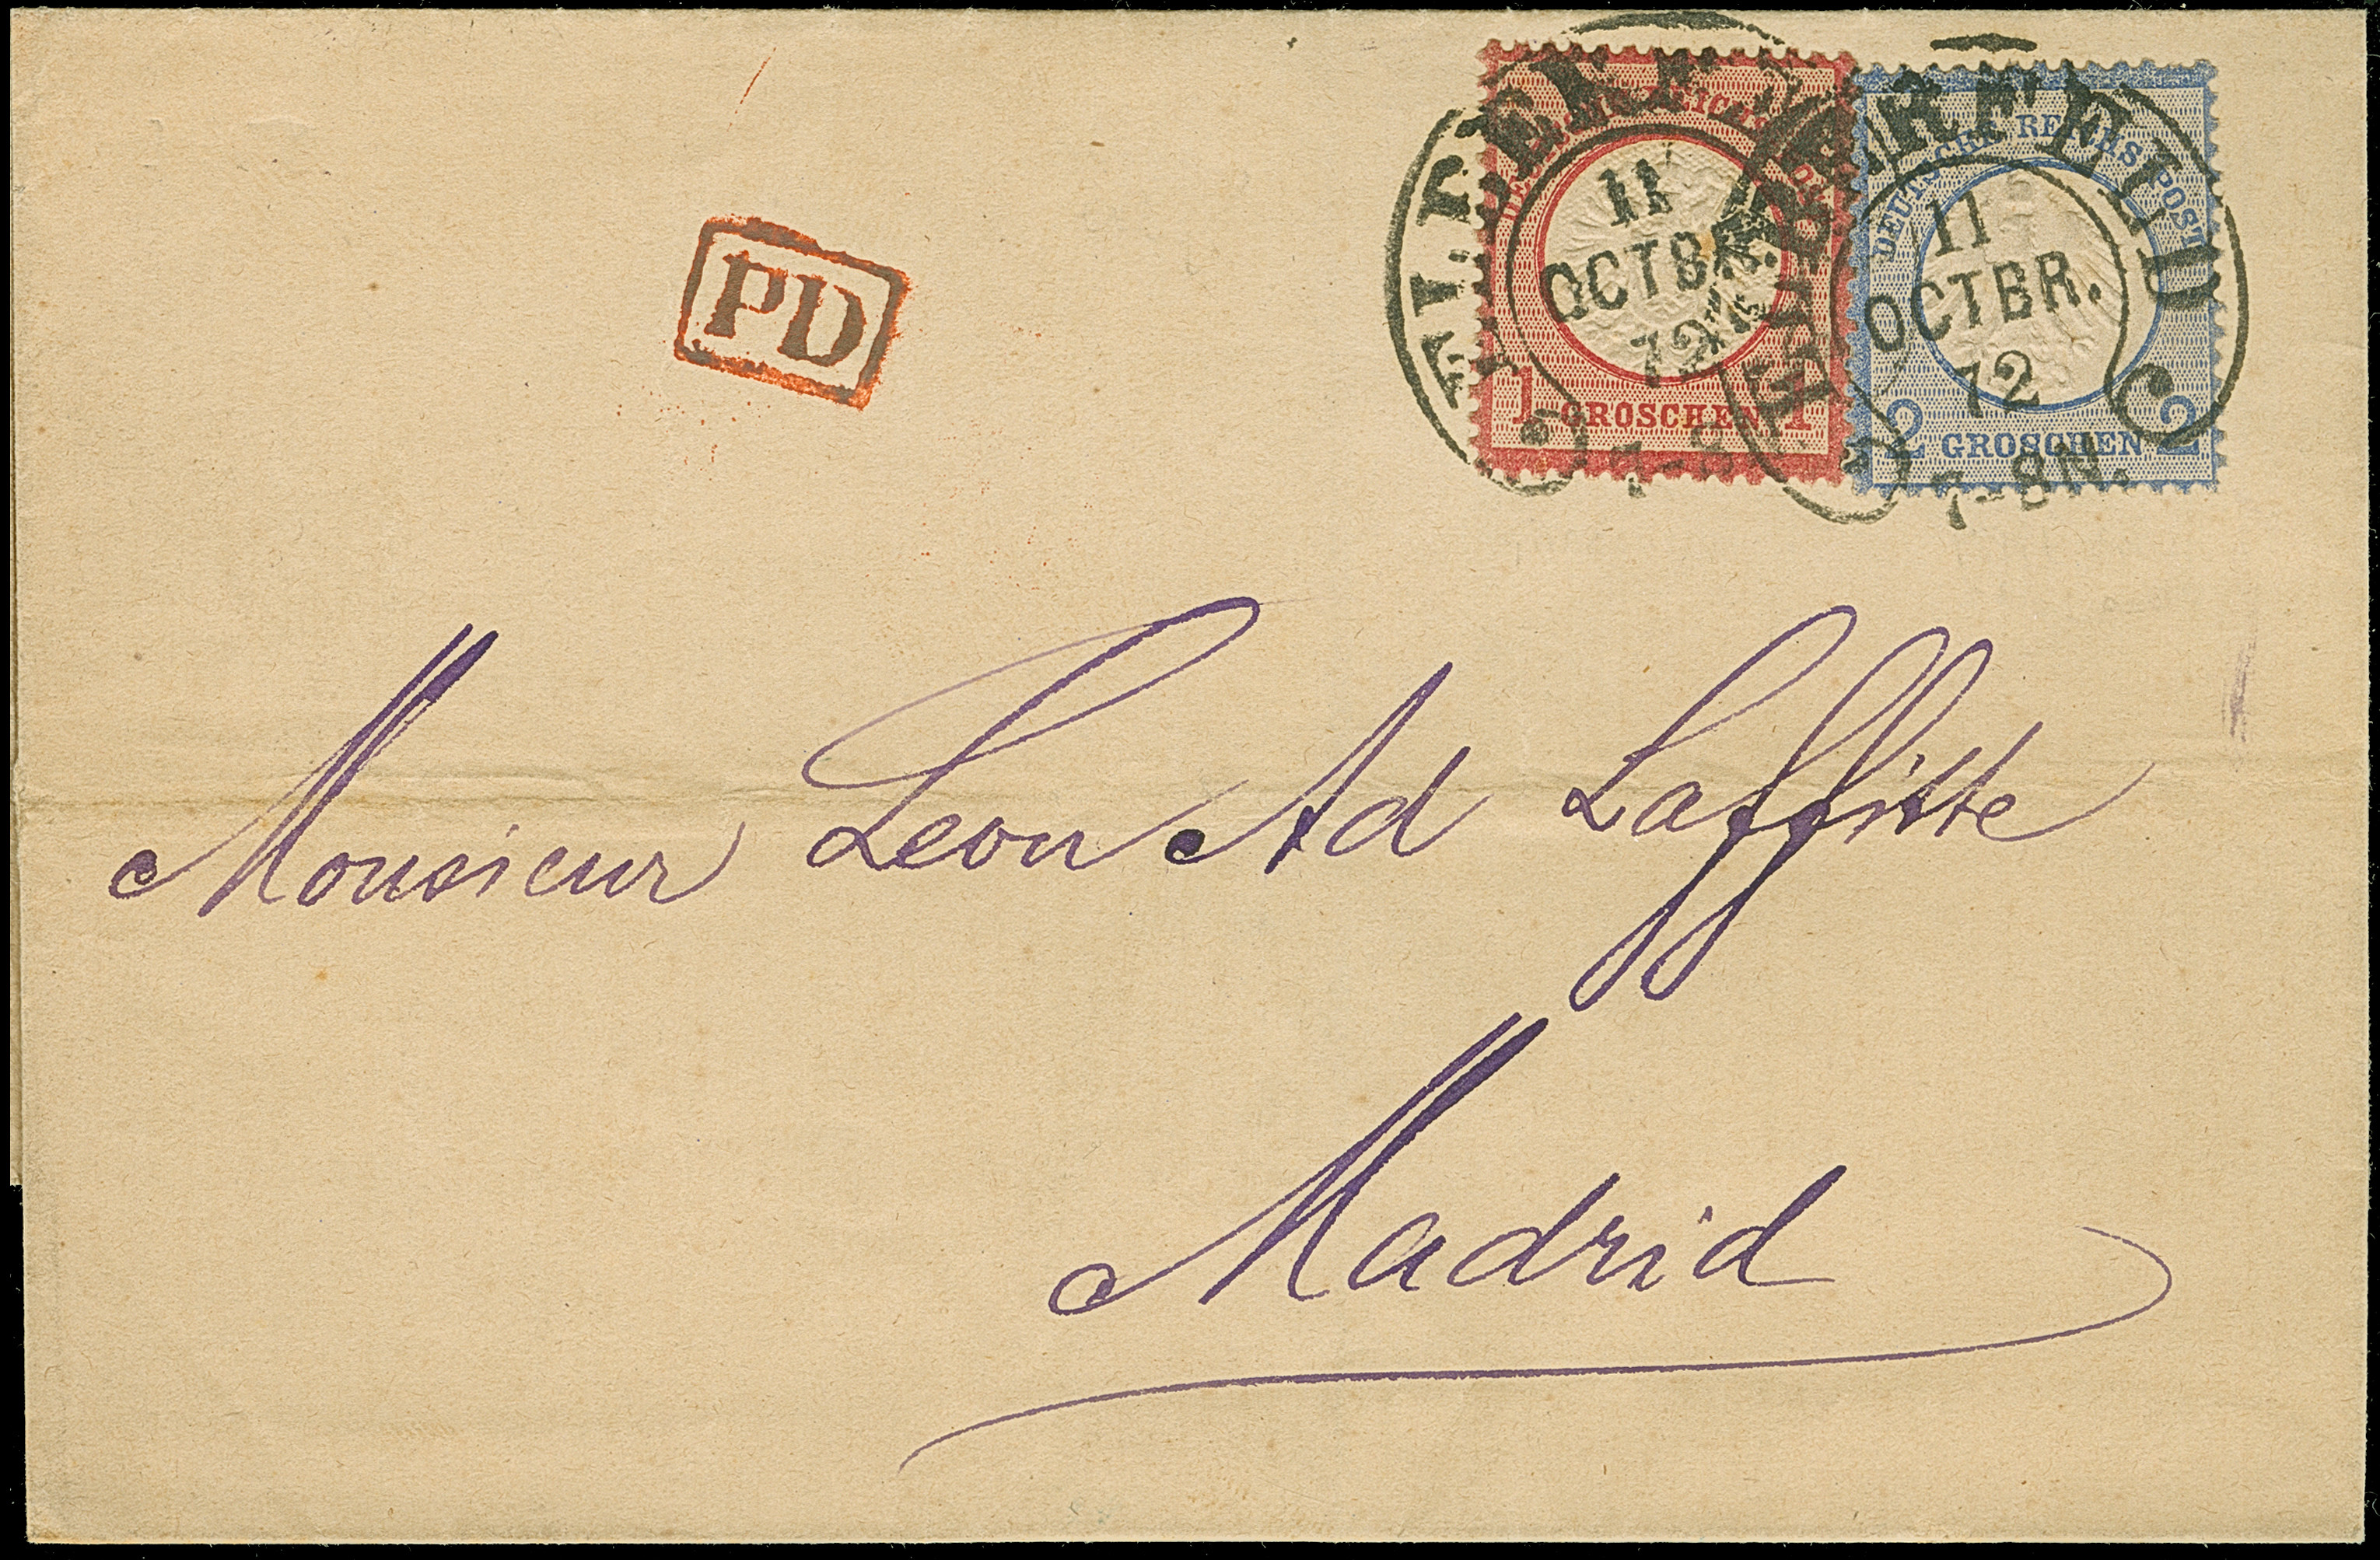 PD
DEUTSCHE REICHS POST
1 GROSCHEN 1
DEUTSCHE REICHS POST
2 GROSCHEN 2
ELBERFELD
11
OCTBR.
72
ELBERFELD
11
OCTBR.
72
7-8N.
Monsieur Leon Ad Laffitte
Madrid